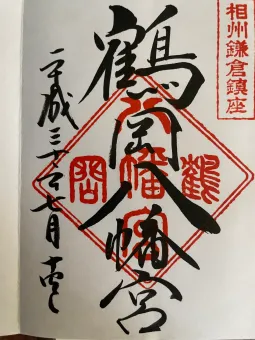 相州鎌倉鎮座
鶴岡八幡宮
八幡宮
鶴
岡
平成三十年七月